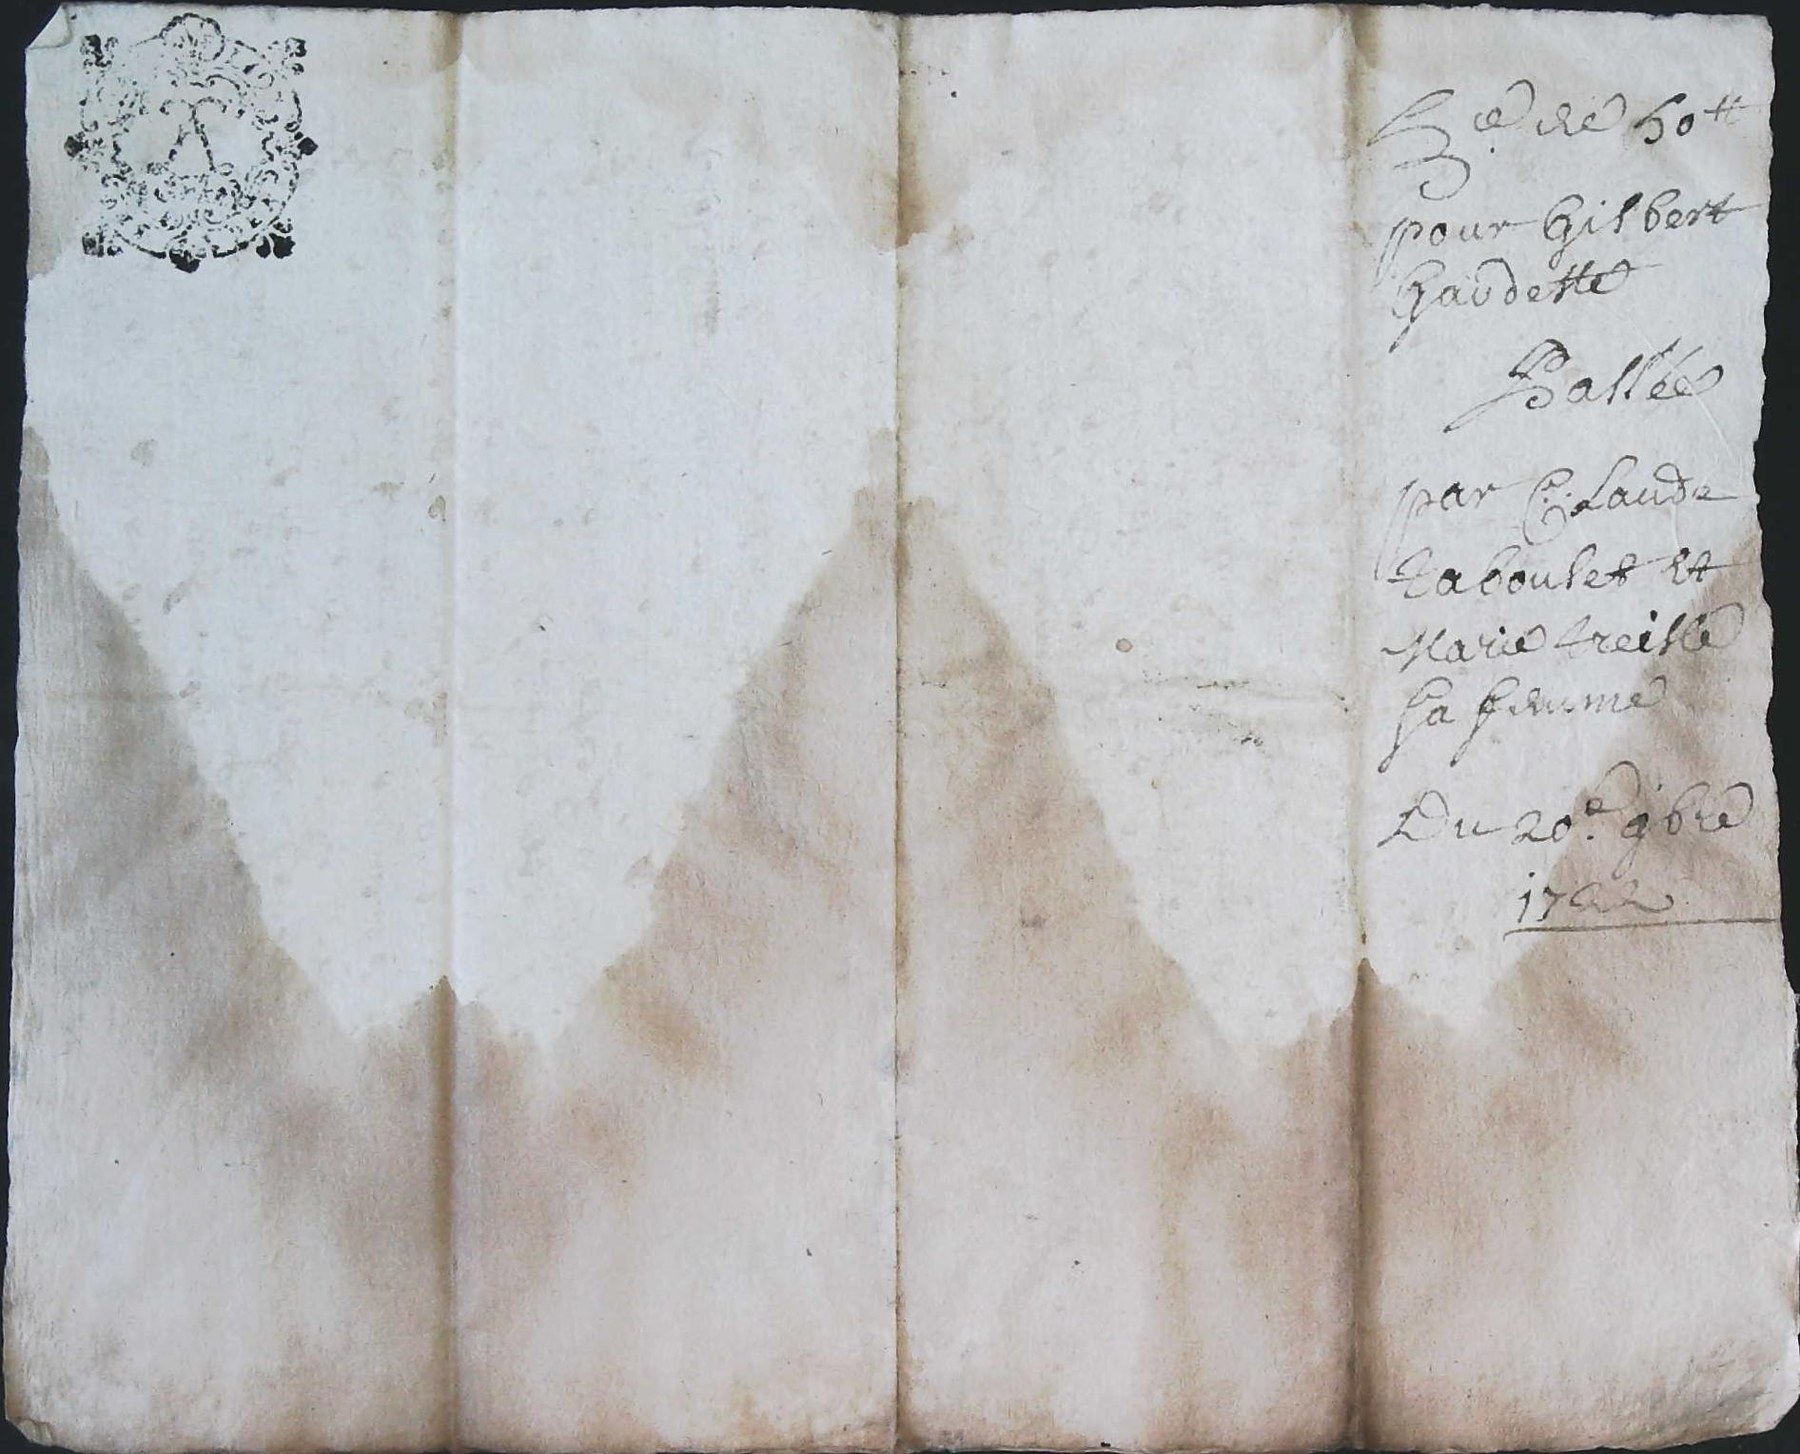 de 50tt
pour Gilbert
Gaudette
Passée
par Claude
Taboulet Et
Marie treille
sa femme
Du 20e. 9bre
1722